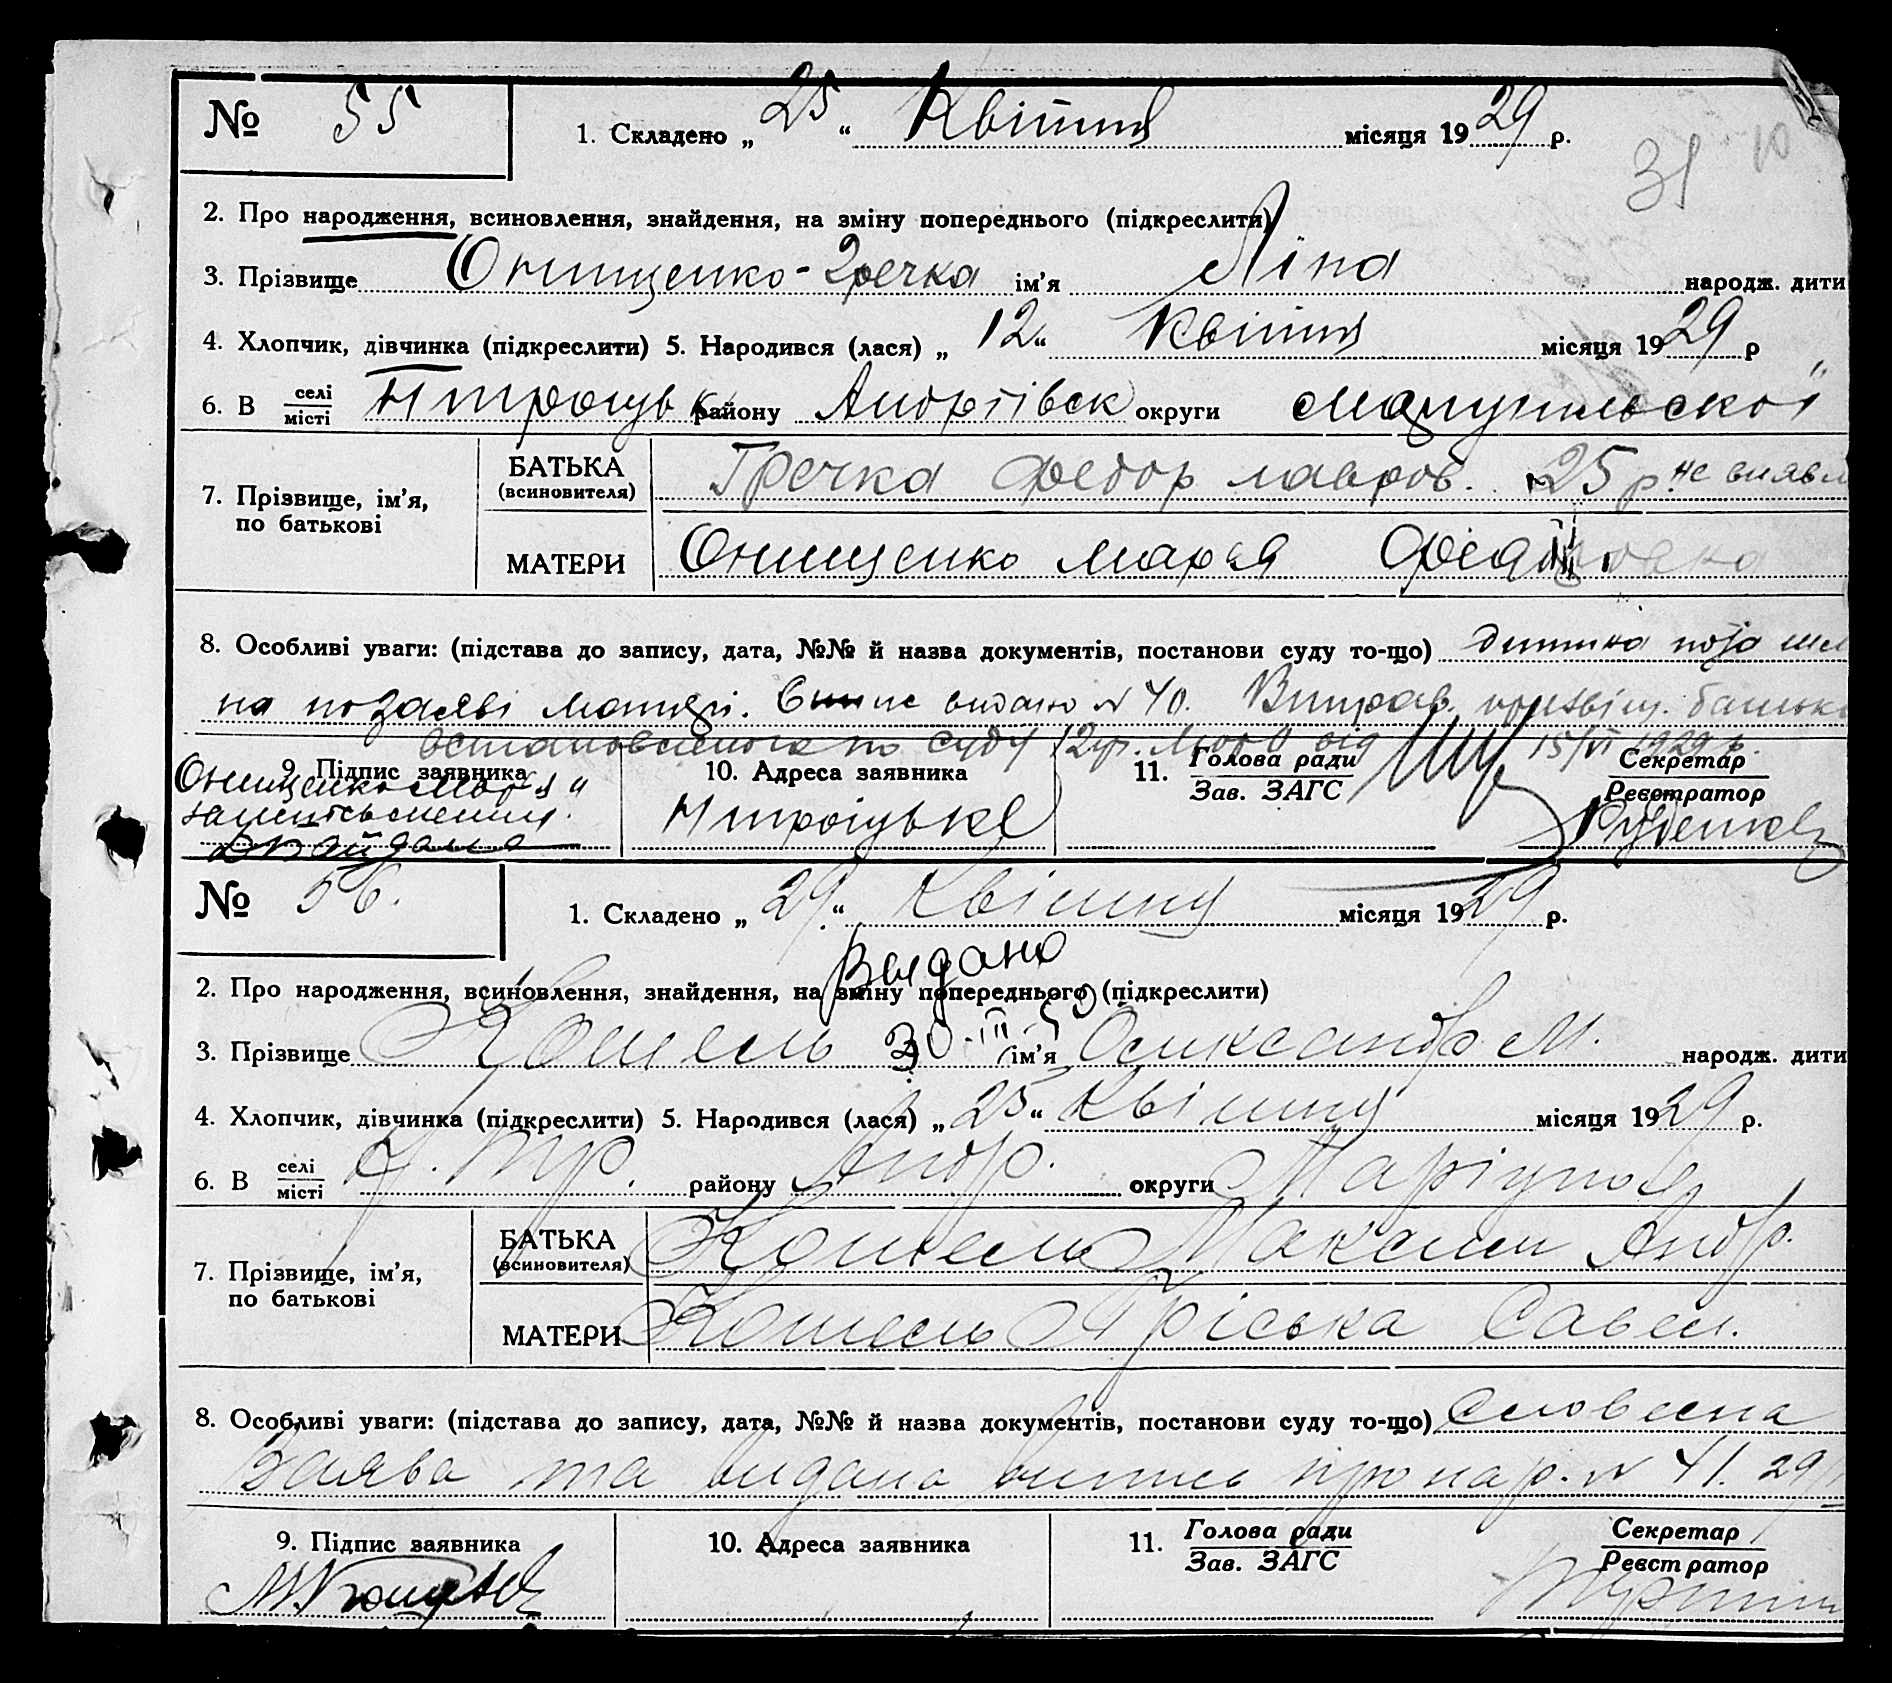 № 55
1. Складено „ 25 “ Квітня місяця 1929 р.
31 10
2. Про народження, всиновлення, знайдення, на зміну попереднього (підкреслити)
3. Прізвище Онищенко-Гречка ім’я Ліна народж. дити
4. Хлопчик, дівчинка (підкреслити) 5. Народився (лася) „ 12 “ Квітня місяця 1929 р
6. В селі місті району Андріївськ округи Маріупільської
7. Прізвище, ім’я, по батькові
БАТЬКА (всиновителя) Гречка Федор лавров. 25 р. не виявл
МАТЕРИ Онищенко Марія
8. Особливі уваги: (підстава до запису, дата, №№ й назва документів, постанови суду то-що) Дитина
на по заяві матери. видано № 40. батька
встановленого по суду від 15/VI 1929 р.
9. Підпис заявника
Онищенко
10. Адреса заявника
11. Голова ради Зав. ЗАГС
Секретар Реєстратор
№ 56.
1. Складено „ 29. “ Квітня місяця 1929 р.
Выдано
2. Про народження, всиновлення, знайдення, на зміну попереднього (підкреслити)
3. Прізвище Кошель 30-III- ім’я Олександр М. народж. дити
4. Хлопчик, дівчинка (підкреслити) 5. Народився (лася) „ 25 “ Квітня місяця 1929 р.
6. В селі місті району Андр. округи Маріупол
7. Прізвище, ім’я, по батькові
БАТЬКА (всиновителя) Кошель Максим Андр.
МАТЕРИ Кошель Пріська Савел.
8. Особливі уваги: (підстава до запису, дата, №№ й назва документів, постанови суду то-що) Словесна
Заява та видана випись про нар. № 41. 29/
9. Підпис заявника
10. Адреса заявника
11. Голова ради Зав. ЗАГС
Секретар Реєстратор